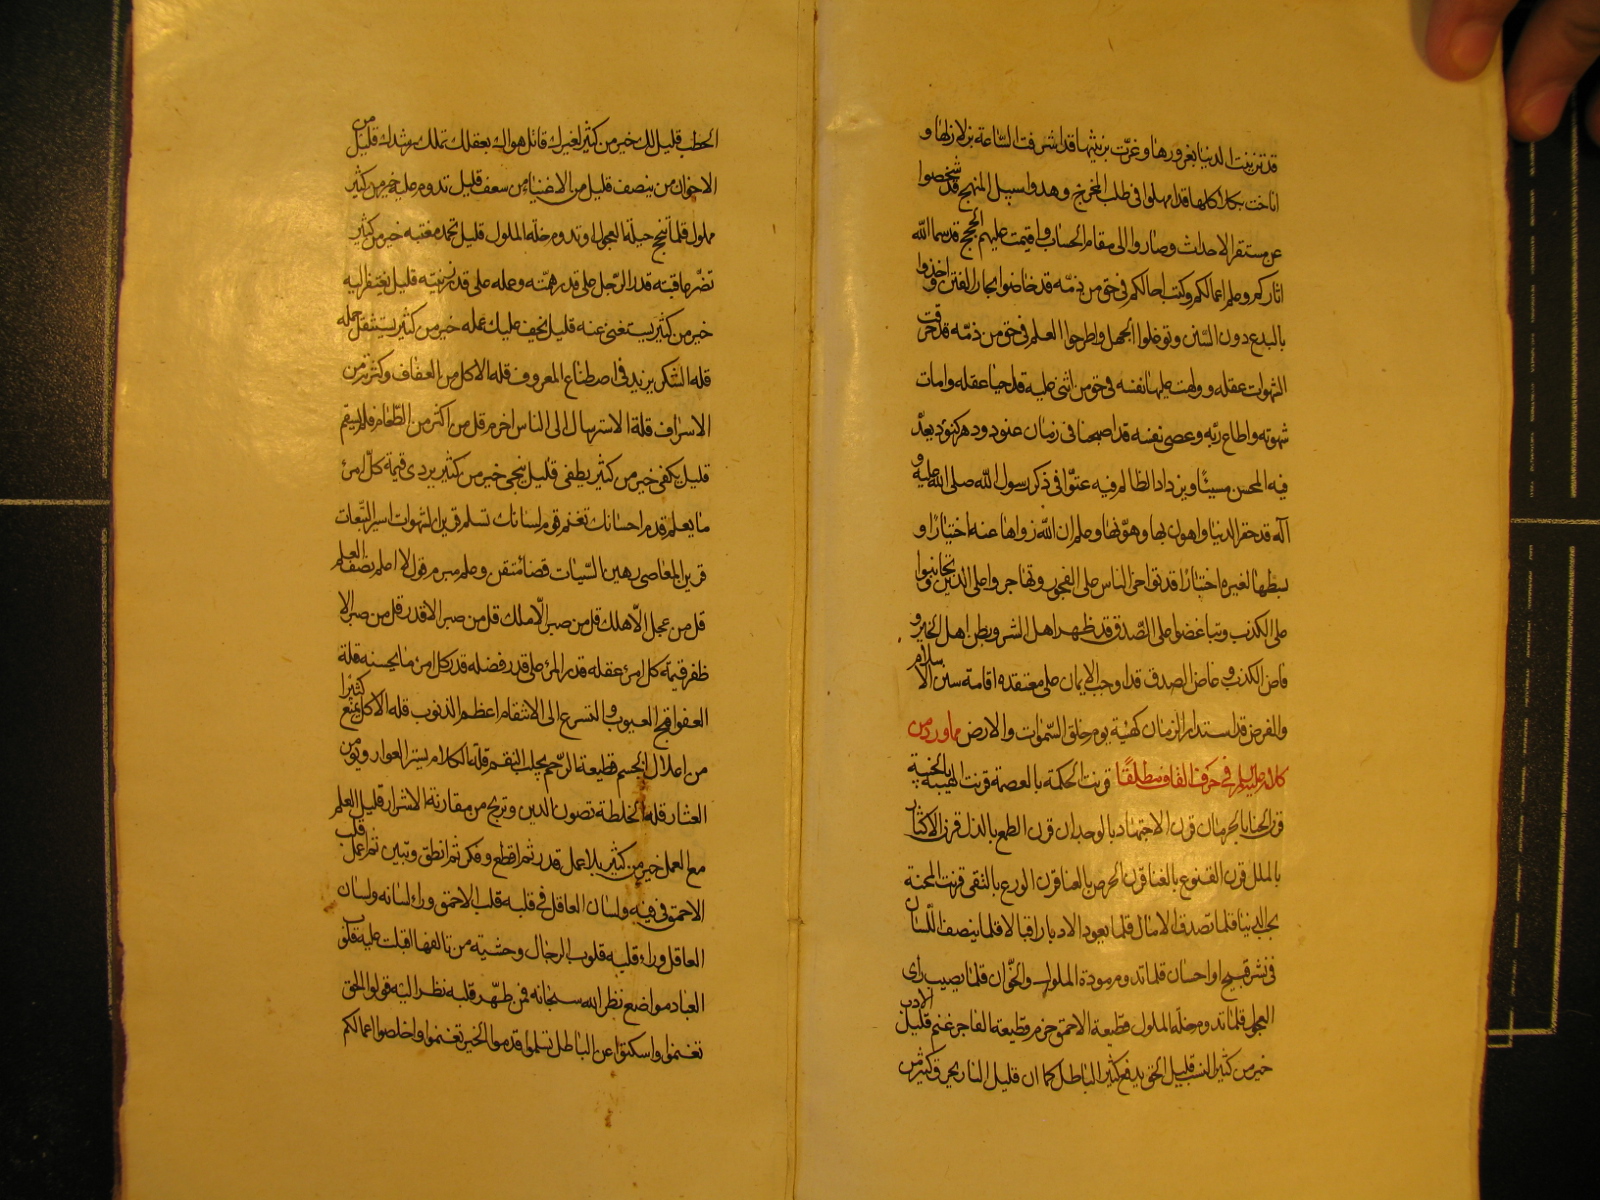 قد تزينت الدنيا بغرورها وغرّت بزينتها قد اشرفت السّاعة بزلازلها و
اناخت بكلاكلها قد امهلوا فى طلب المخرج وهدوا سبيل المنهج قد شخصوا
عن مستقر الاحداث وصاروا الى مقام الحساب واقيمت عليهم الحجج قد سما الله
اثاركم وعلم اعمالكم وكتب اجالكم فى حق من ذمّه قد خاضوا بحار الفتن واخذوا
بالبدع دون السّنن وتوغلوا الجهل واطرحوا العلم فى حق من ذمّه قد خرقت
الشهوات عقله وولهت عليها نفسه فى حق من اثنى عليه قد احيا عقله وامات
شهوته واطاع ربّه وعصى نفسه قد اصبحنا فى زمان عنود ودهر كنود يعدّ
فيه المحسن مسيئًا ويزداد الظالم فيه عتوّا فى ذكر رسول الله صلى الله عليه و
آله قد حقر الدنيا واهون بها وهوّنها وعلم ان الله زواها عنه اختيارًا و
بسطها لغيره اختبارًا قد تواخى الناس على الفجور وتهاجروا على الدين وتحابوا
على الكذب وتباغضوا على الصّدق قد ظهر اهل الشر وبطن اهل الخير و
فاض الكذب وغاض الصدق قد اوجب الايمان على معتقده اقامة سنن الاسلام
والفرض قد استدار الزمان كهيئة يوم خلق السّموات والارض مما ورد من
كلامه عليه السلم فى حرف القاف مطلقًا قرنت الحكمة بالعصمة قرنت الهيبة بالخيبة
قرن الحيا بالحرمان قرن الاجتهاد بالوجدان قرن الطمع بالذل قرن الاكثار
بالملل قرن القنوع بالغنا قرن الحرص بالعنا قرن الورع بالتقى قرنت المحنة
بحب الدنيا قلما تصدق الامال قلما يعود الادبار اقبالا قلما ينصف اللّسان
فى نشر قبيح او احسان قلما تدوم مودة الملوك والخوّان قلما يصيب راى
العجول قلما تدوم خلّة الملول قطيعة الاحمق حزم قطيعة الفاجر غنم قليل الادب
خير من كثير النسب قليل الحق يدفع كثير الباطل كما ان قليل النار يحرق كثير من
الحطب قليل لك خير من كثير لغيرك قاتل هواك بعقلك تملك رشدك قليل من
الاخوان من ينصف قليل من الاغنياء من يسعف قليل تدوم عليه خير من كثير
مملول قلما تنجح حيلة العجول او تدوم خلّة الملول قليل تحمد مغبته خير من كثير
تضّر عاقبته قدر الرّجل على قدر همّته وعمله على قدر نيّته قليل يفتقر اليه
خير من كثير يستغنى عنه قليل يخف عليك عمله خير من كثير يستثقل حمله
قلة الشكر يزهد فى اصطناع المعروف قلة الاكل من العفاف وكثرته من
الاسراف قلة الاسترسال الى الناس احزم قل من اكثر من الطّعام فلم يسقم
قليل يكفى خير من كثير يطغى قليل ينجى خير من كثير يردى قيمة كلّ امرئ
ما يعلم قدم احسانك تغنم قوم لسانك تسلم قرين الشهوات اسير التبعات
قرين المعاصى رهين السّيئات قضا متقن وعلم مبرم قول لا اعلم نصف العلم
قل من عجل الّا هلك قل من صبر الّا ملك قل من صبر الا قدر قل من صبر الا
ظفر قيمة كل امرئ عقله قدر المرء على قدر فضله قدر كل امرئ ما يحسنه قلة
العفو اقبح العيوب والتسرع الى الانتقام اعظم الذنوب قلة الاكل يمنع كثيرا
من اعلال الجسم قطيعة الرّحم يجلب النقم قلة الكلام يستر العوار ويؤمن
العثار قلة الخلطة تصون الدين وتريح من مقارنة الاشرار قليل العلم
مع العمل خير من كثير بلا عمل قدر ثم اقطع وفكر ثم انطق وتبين ثم اعمل قلب
الاحمق فى فيه ولسان العاقل فى قلبه قلب الاحمق وراء لسانه ولسان
العاقل وراء قلبه قلوب الرجال وحشية من تالفها اقبلت عليه قلوب
العباد مواضع نظر الله سبحانه فمن طهّر قلبه نظر اليه قولوا الحق
تغنموا واسكتوا عن الباطل تسلموا قدموا الخير تغنموا واخلصوا اعمالكم